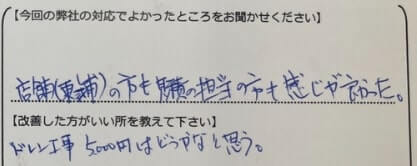 【今回の弊社の対応でよかったところをお聞かせください】
店舗(東舗)の方も見積の担当の方も感じが良かった。
【改善した方がいい所を教えて下さい】
ドレン工事 5,000円はどうかなと思う。